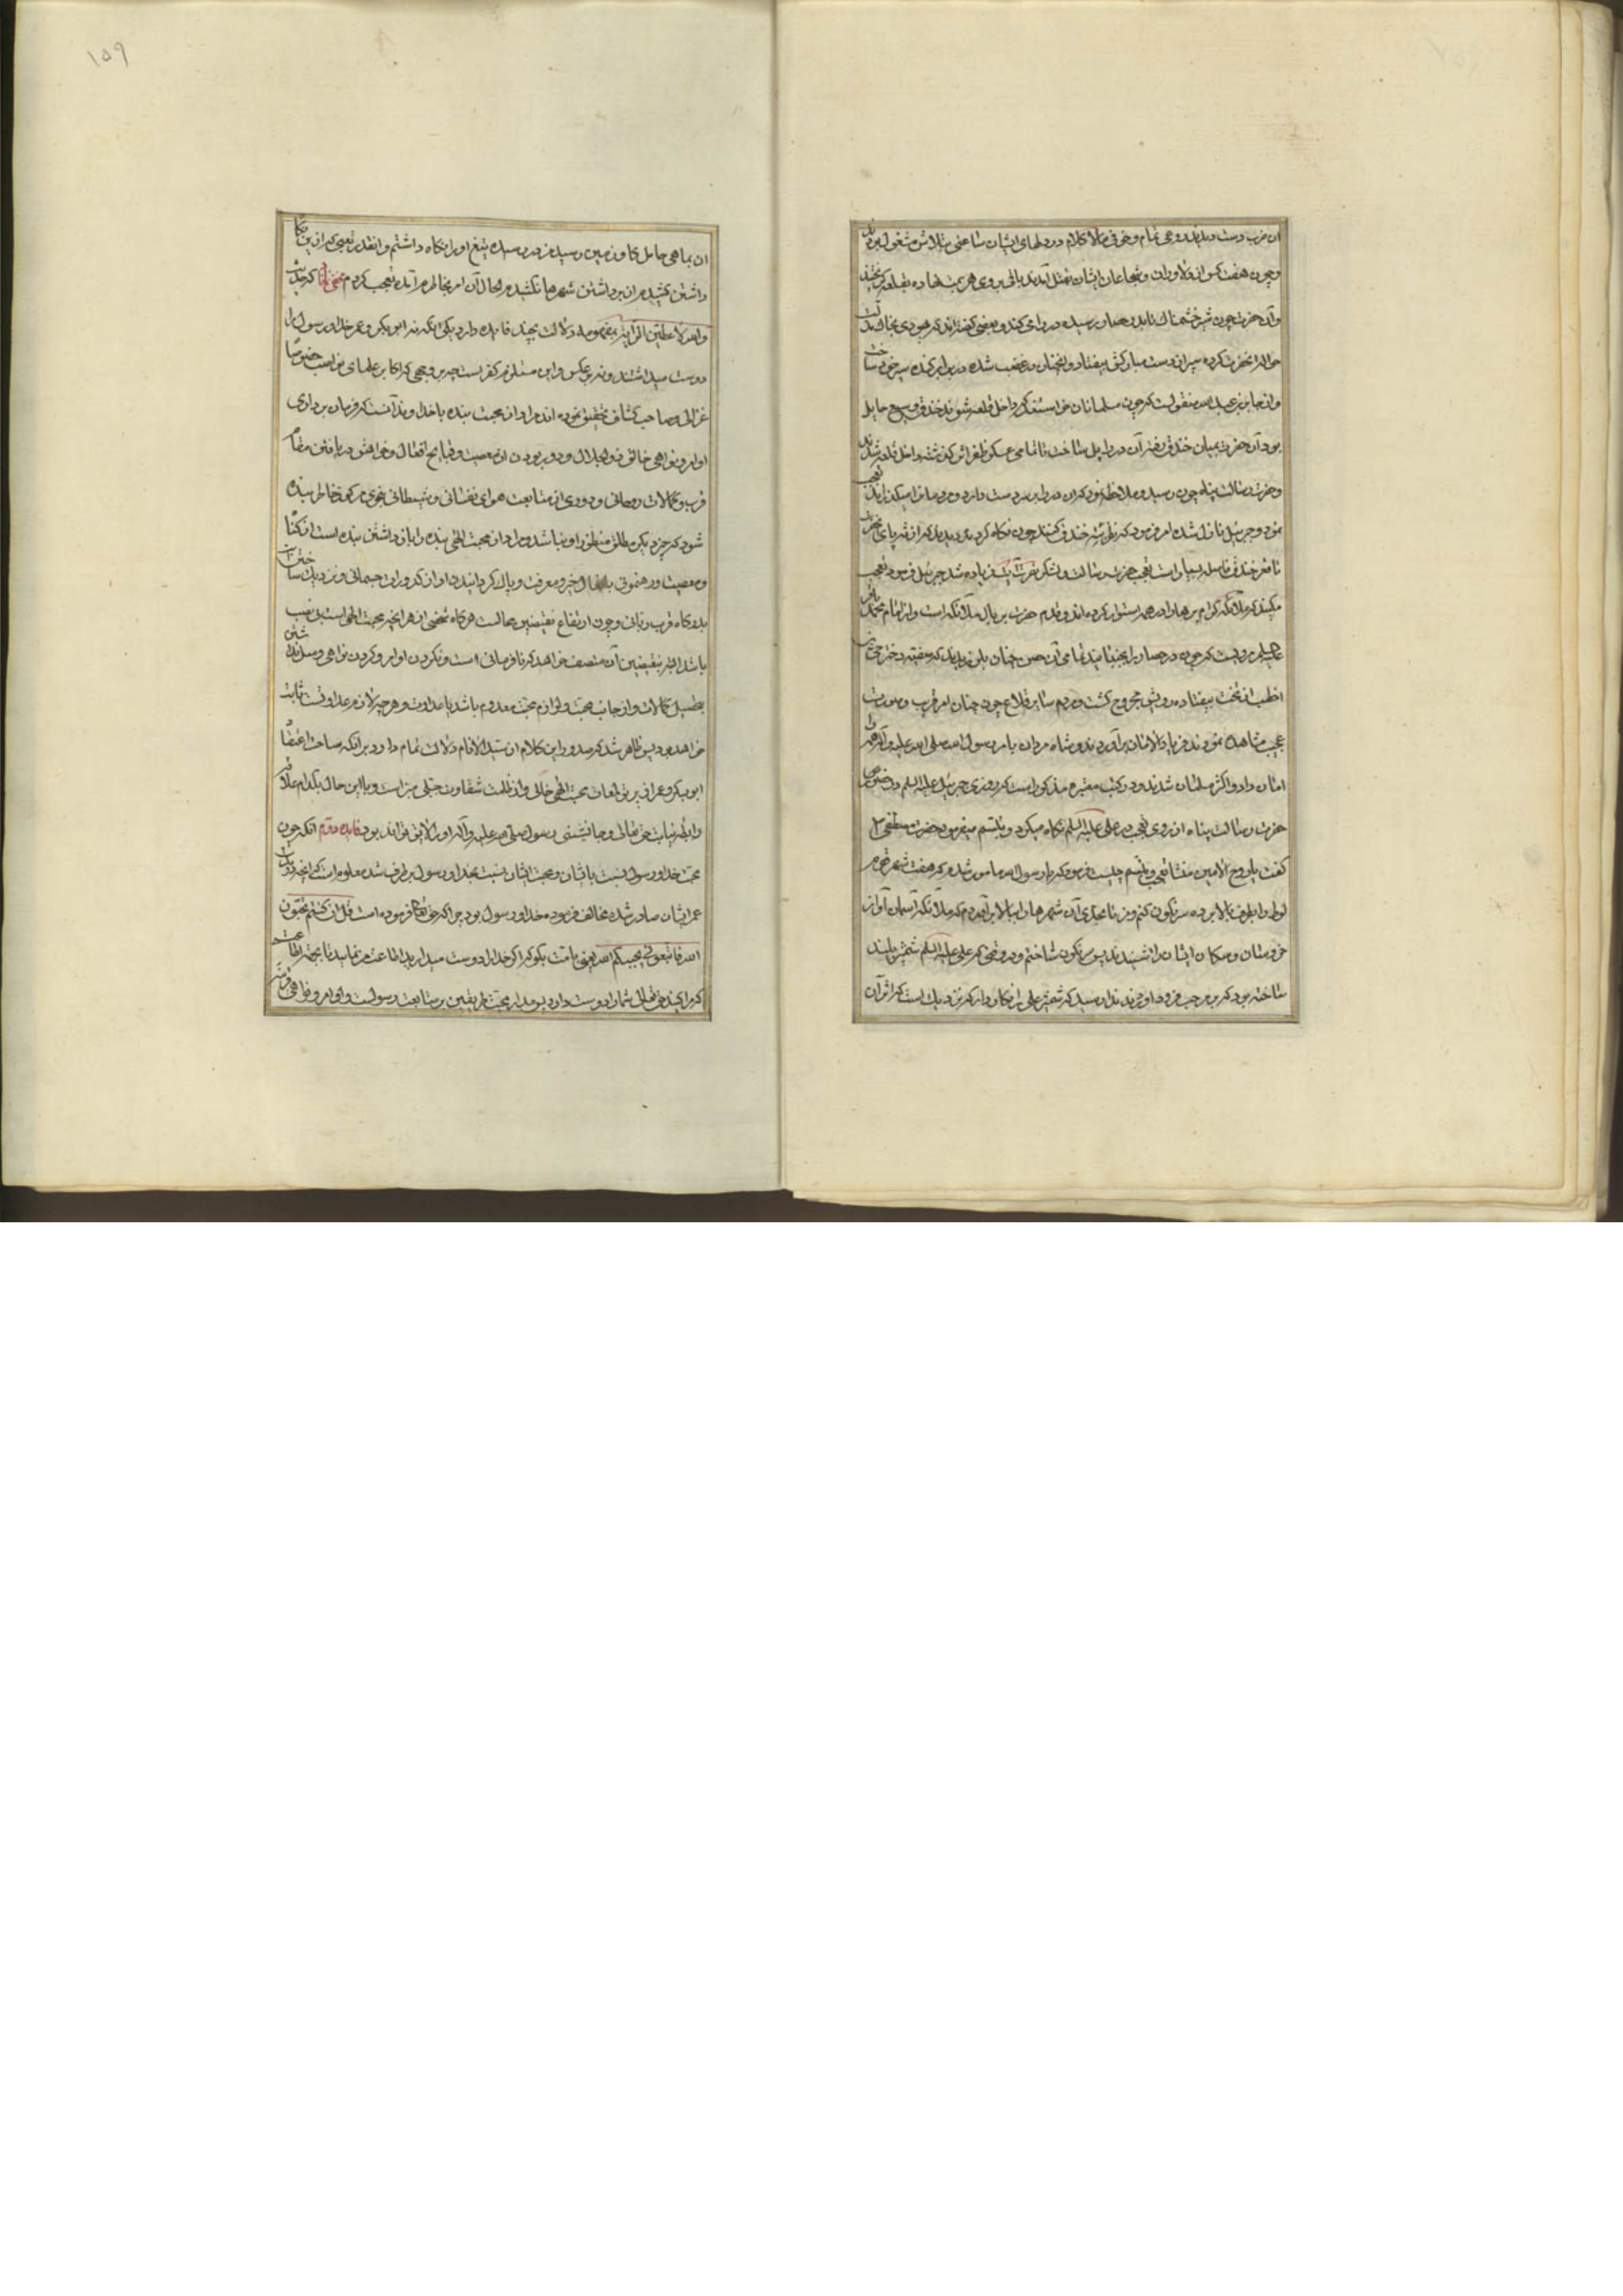 وچون هفت کس از دلاوران وشجاعان ایشان بقتل آمدند باقی بروی هزیمت نهاده بقلعه گریختند
وآن حضرت چون شیر خشمناک تا بدر حصار رسیده در را می کند و بعضی گفته‌اند که یهودی
حواله آنحضرت کرده سپر از دست مبارکش بیفتاد و آنچنان در غضب شده در برابر کنده سپر خود ساخت
واز جابر بن عبدالله منقولست که چون مسلمانان خواستند که داخل قلعه شوند خندق وسیع حایل
بود آن حضرت بمیان خندق رفته آن در را پل ساخت تا تمامی عسکر ظفر اثر گذشته داخل قلعه شدند
وحضرت رسالت پناه چون رسید و ملاحظه نمود که آن در را بر سر دست دارد و مردمانرا میگذراند تعجب
نمود وجبرئیل نازل شده امر نمود که نظر بته خندق کنند چون نگاه کردند دیدند که از ته پای آنحضرت
تا قعر خندق فاصله بسیار است تعجب حضرت رسالت ولشکر نصرت زیاده شد جبرئیل فرمود تعجب
میکنید که ملائکه کرام پرها را در هم استوار کرده اند و قدم حضرت بر بال ملائکه است واز امام محمد باقر
علیه السلم مرویست که چون در حصار را بجنبانید تمامی آن حصن چنان بلرزید که صفیه دختر حی بن
اخطب از تخت بیفتاد و رویش مجروح گشت ومردم سایر قلاع چون چنان امر غریب وصورت
عجیب مشاهده نمودند فریاد الامان برآوردند و شاه مردان بامر رسول الله صلی الله علیه وآله همه را
امان داد و اکثر مسلمان شدند و در کتب معتبره مذکور است که روزی جبرئیل علیه السلم در حضور
حضرت رسالت پناه از روی تعجب در علی علیه السلم نگاه میکرد و تبسم میفرمود حضرت مصطفی
گفت یا روح الامین منشا تعجب و تبسم چیست فرمود که یا رسول الله مامور شدم که هفت شهر قوم
لوط را بطرف بالا برده سرنگون کنم ومن تا بحدی آن شهرها را ببالا برآوردم که ملائکه آسمان آواز
خروسان وسکان ایشان را شنیدند پس سرنگون ساختم و در وقتی که علی علیه السلم شمشیر بلند
ساخته بود که بر مرحب فرود آورد ندا رسید که شمشیر علی را نگاه دار که نزدیک است که اثر آن
۱۵۹
آن بماهی حامل گاو زمین رسد من در رسیدم تیغ او را نگاه داشتم و آنقدر تعبی که ازین نگاه
داشتن کشیدم از برداشتن شهرها نکشیدم الحال آن امر بخاطرم آمده تعجب کردم مخفی نماند که حدیث
والله لاعطین الرایه بمفهومه دلالت بچند فایده دارد یکی آنکه نه ابوبکر وعمر خدا ورسول را
دوست میداشتند ونه بر عکس واین مستلزم کفر است چه بر وجهی که اکابر علمای نواصب خصوصا
غزالی وصاحب کشاف تحقیق نموده اند مراد از محبت بنده با خداوند آنست که فرمان برداری
اوامر ونواهی خالق ذو الجلال ودور بودن از معصیت وقبایح افعال وخواهش در یافتن مقام
قرب وکمالات روحانی ودوری از متابعت هوای نفسانی وشیطانی بنحوی مرکوز خاطر بنده
شود که چیزدیگر مطلق منظور او نباشد ومراد از محبت الهی بنده را باز داشتن بنده است از گناه
ومعصیت ورهنمونی بافعال خیر ومعرفت وپاک گردانیدن او از کدورات جسمانی ونزدیک ساختن
بدرگاه قرب ربانی وچون ارتفاع نقیضین محالست هرگاه شخصی از هر آنچه محبت الهی است بی نصیب
باشد البته بنقیضین آن متصف خواهد که نافرمانی است ونکردن اوامر وکردن نواهی
تحصیل کمالات واز جانب محبت ولوازم محبت معدوم باشد پا عداوت وهرچه لازم عداوتست ثابت
خواهد بود پس ظاهر شد که صدور این کلام از سید الانام دلالت تمام دارد بر آنکه ساحت اعتقاد
ابوبکر وعمر از پرتو لمعات محبت الهی خالی واز ظلمت شقاوت جبلی است وبا این حال بکدام علاقه
رابطه نیابت حق تعالی وجانشینی رسول صلی الله علیه وآله او را لایق تواند بود فایده دوم آنکه چون
محبت خدا ورسول نسبت باایشان ومحبت ایشان نسبت بخدا ورسول برطرف شد معلوم است که آنچه
عمر ایشان صادر شده مخالف فرموده خدا ورسول بود چرا که حق تعالی فرموده است قل ان کنتم تحبون
الله فاتبعونی یحببکم الله یعنی بامت بگو که اگر خدا را دوست میدارید اطاعت من نمایید تا
که مرا کنید حق تعالی شما را دوست دارد پس مدار محبت طرفین بر متابعت رسولست واوامر ونواهی